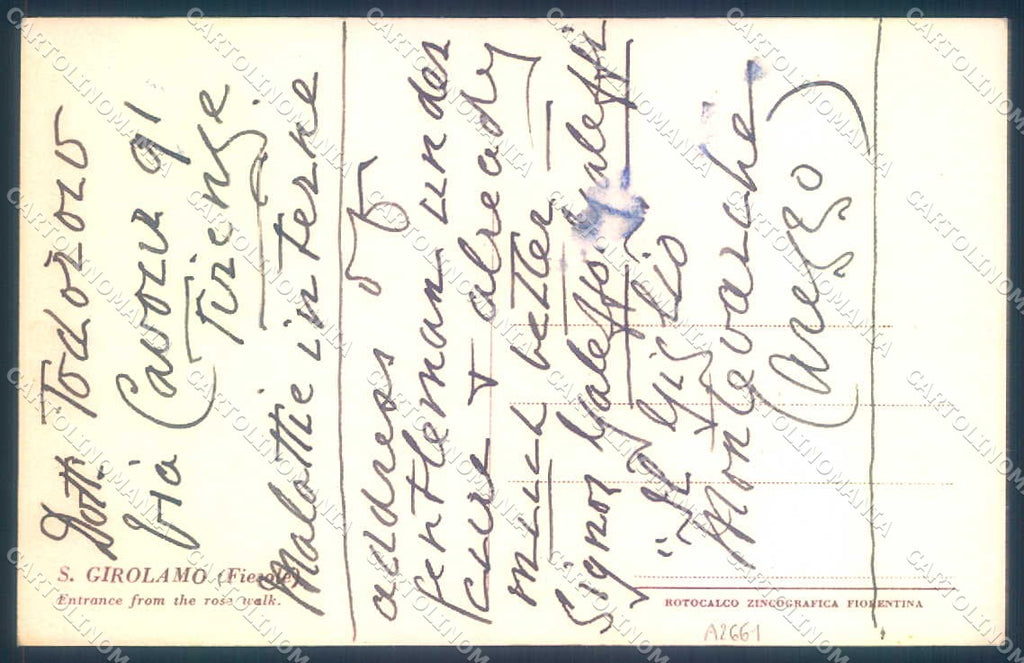 Dott. Todorow
Via Cavour 91
Firenze
Malattie interne
address of
gentleman under
cure + already
much better
Signor Galeffi Galeffi
"Il Giglio
Montevarche
(Arezzo)
S. GIROLAMO (Fiesole)
Entrance from the rose walk.
ROTOCALCO ZINCOGRAFICA FIORENTINA
A2661
CARTOLINOMANIA